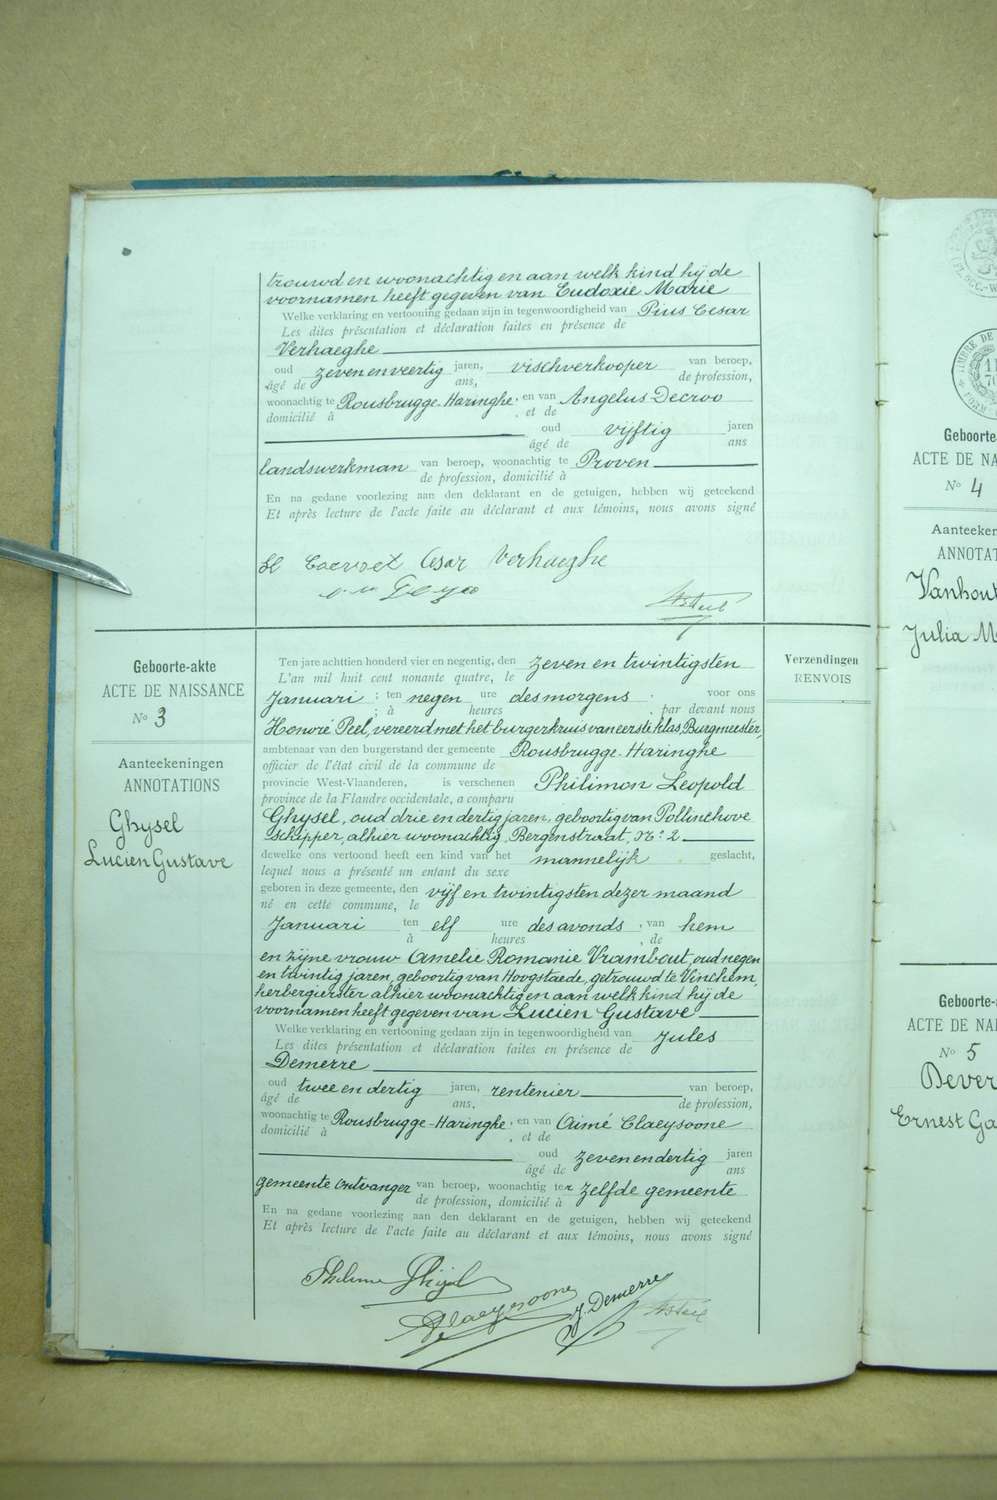 trouwd en woonachtig en aan welk kind hij de
voornamen heeft gegeven van Eudoxie Marie
Welke verklaring en vertooning gedaan zijn in tegenwoordigheid van Pius Cesar
Les dites présentation et déclaration faites en présence de
Verhaeghe
oud zeven en veertig jaren, vischverkooper van beroep,
âgé de ans, de profession,
woonachtig te Rousbrugge-Haringhe; en van Angelus Decroo
domicilié à et de
oud vijftig jaren
âgé de ans
landswerkman van beroep, woonachtig te Proven
de profession, domicilié à
En na gedane voorlezing aan den deklarant en de getuigen, hebben wij geteekend
Et après lecture de l'acte faite au déclarant et aux témoins, nous avons signé
Cesar Verhaeghe
Geboorte-akte
ACTE DE NAISSANCE
No 3
Aanteekeningen
ANNOTATIONS
Ghysel
Lucien Gustave
Ten jare achttien honderd vier en negentig, den zeven en twintigsten
L'an mil huit cent nonante quatre, le
Januari ; ten negen ure des morgens voor ons
; à heures , par devant nous
Honoré Peel, vereerd met het burgerkruis van eerste klas, Burgmeester,
ambtenaar van den burgerstand der gemeente Rousbrugge-Haringhe
officier de l'état civil de la commune de
provincie West-Vlaanderen, is verschenen Philimon Leopold
province de la Flandre occidentale, a comparu
Ghysel, oud drie en dertig jaren, geboortig van Pollinchove
schipper, alhier woonachtig, Bergenstraat, No: 2
dewelke ons vertoond heeft een kind van het mannelijk geslacht,
lequel nous a présenté un enfant du sexe
geboren in deze gemeente, den vijf en twintigsten dezer maand
né en cette commune, le
Januari ten elf ure des avonds , van hem
à heures , de
en zijne vrouw Amelie Romanie Vrambout, oud negen
en twintig jaren, geboortig van Hoogstaede, getrouwd te Vinchem,
herbergierster alhier woonachtig en aan welk kind hij de
voornamen heeft gegeven van Lucien Gustave
Welke verklaring en vertooning gedaan zijn in tegenwoordigheid van Jules
Les dites présentation et déclaration faites en présence de
Demerre
oud twee en dertig jaren, rentenier van beroep,
âgé de ans, de profession,
woonachtig te Rousbrugge-Haringhe; en van Aimé Claeysoone
domicilié à , et de
oud zeven en dertig jaren
âgé de ans
gemeente ontvanger van beroep, woonachtig ter zelfde gemeente
de profession, domicilié à
En na gedane voorlezing aan den deklarant en de getuigen, hebben wij geteekend
Et après lecture de l'acte faite au déclarant et aux témoins, nous avons signé
Ghijsel
Claeysoone
J. Demerre
Verzendingen
RENVOIS
TIMBRE DE
Geboorte-
ACTE DE NA
No 4
Aanteeken
ANNOTAT
Vanhout
Julia M
Geboorte-a
ACTE DE NAI
No 5
Dever
Ernest Ga